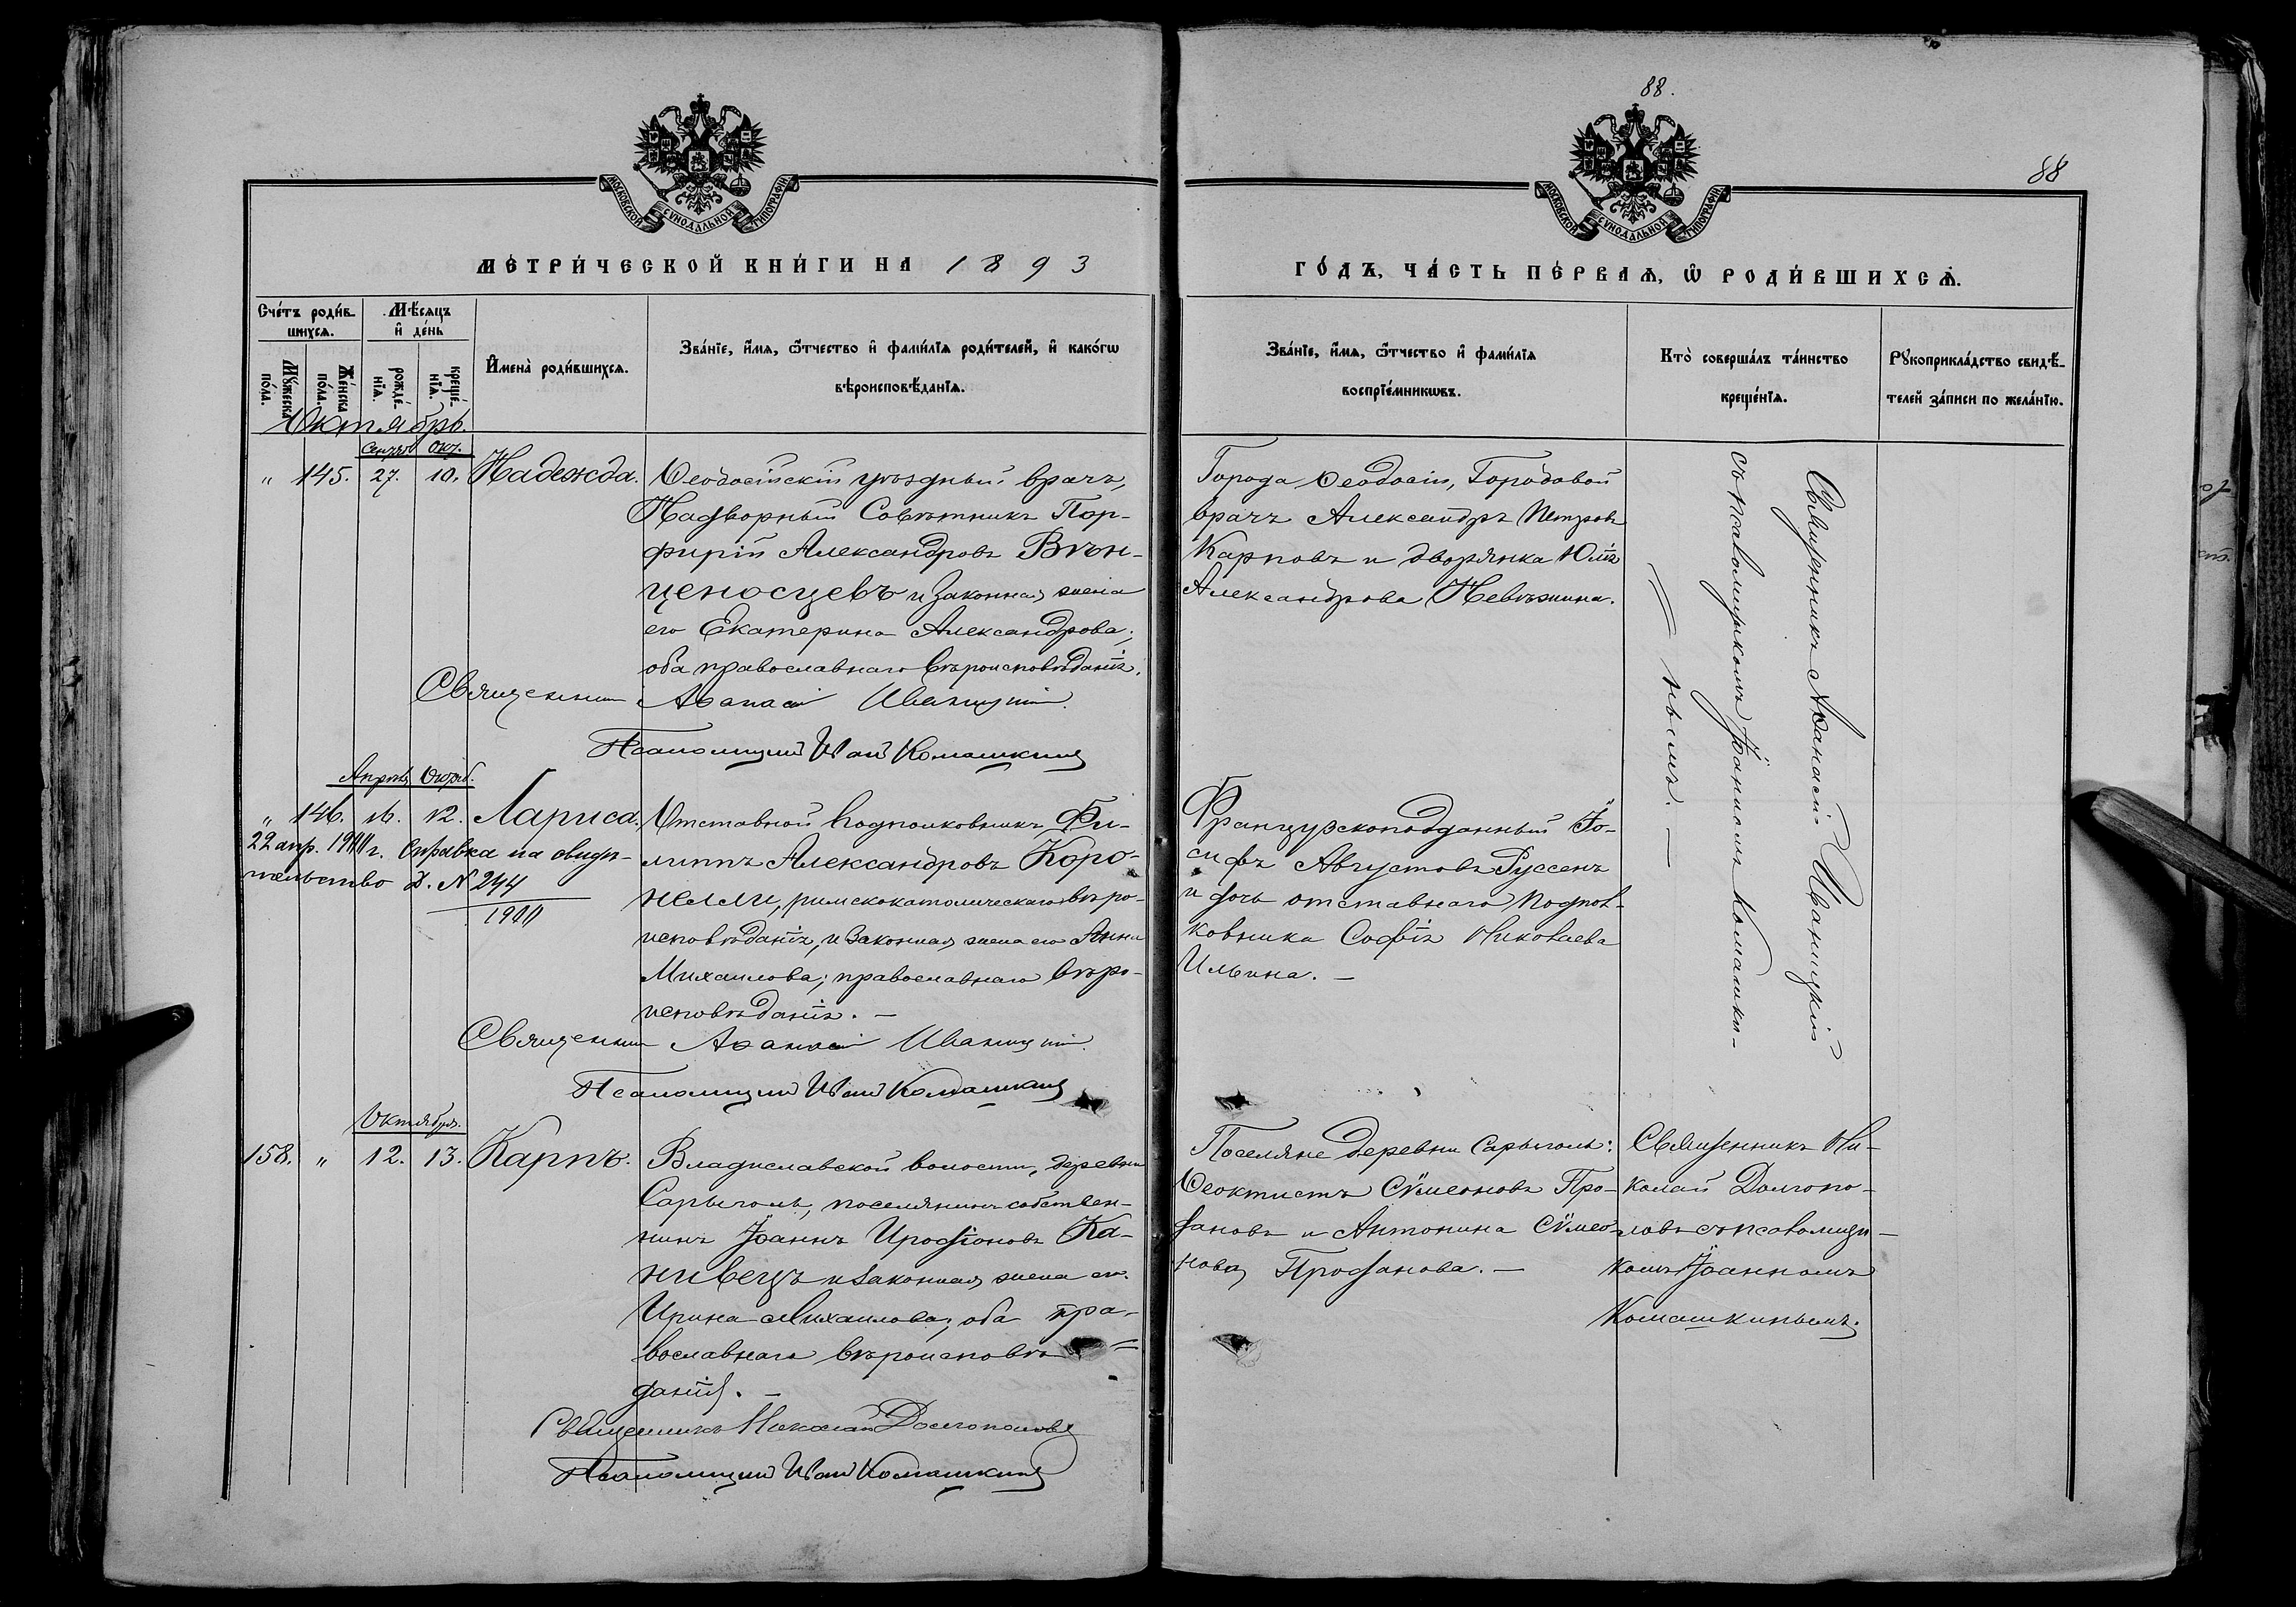 88.
88
МОСКОВСКОЙ СѴНОДАЛЬНОЙ ТИПОГРАФІИ
МОСКОВСКОЙ СѴНОДАЛЬНОЙ ТИПОГРАФІИ
МЕТРИ́ЧЕСКОЙ КНИ́ГИ НА 1893
ГО́ДЪ, ЧА́СТЬ ПЕ́РВАѦ, Ѿ РОДИ́ВШИХСѦ.
Сче́тъ роди́в-
шихсѧ.
Мꙋ́жеска по́ла.
Же́нска по́ла.
Мѣ́сѧцъ
и҆ де́нь
рожде́-
нїѧ.
креще́-
нїѧ.
И҆мена̀ роди́вшихсѧ.
Зва́нїе, и҆́мѧ, ѻ҆́тчество и҆ фами́лїѧ роди́телей, и҆ како́гѡ
вѣроисповѣ́данїѧ.
Зва́нїе, и҆́мѧ, ѻ҆́тчество и҆ фами́лїѧ
воспрїе́мникѡвъ.
Кто̀ соверша́лъ та́инство
креще́нїѧ.
Рꙋкоприкла́дство свидѣ́-
телей за́писи по жела́нїю.
Октябрь.
Сентяб. Окт.
" 145. 27. 10. Надежда.
Ѳеодосійскій уѣздный врачъ,
Надворный Совѣтникъ Пор-
фирій Александровъ Вѣн-
ценосцевъ и законная жена
его Екатерина Александрова;
оба православнаго вѣроисповѣданія.
Священникъ Аѳанасій Иваницкій.
Псаломщикъ Иванъ Комашкинъ
Города Ѳеодосіи, Городовой
врачъ Александръ Петровъ
Карповъ и дворянка Юлія
Александрова Невѣжина.
Священникъ Аѳанасій Иваницкій
съ псаломщикомъ Іоанномъ Комашки-
нымъ. —
Апрѣль Октяб.
" 146. 16. 12. Лариса.
22 апр. 1911 г. Справка на свидѣ-
тельство д. № 244
1911
Отставной Подполковникъ Фи-
липпъ Александровъ Коро-
нелли, римскокатолическаго вѣро-
исповѣданія, и законная жена его Анна
Михаилова; православнаго вѣро-
исповѣданія. —
Священникъ Аѳанасій Иваницкій.
Псаломщикъ Иванъ Комашкинъ
Французскоподданный Іо-
сифъ Августовъ Руссенъ
и дочь отставнаго Подпол-
ковника Софія Николаева
Ильина. —
Октября.
158. " 12. 13. Карпъ.
Владиславской волости, деревни
Сарыголь, поселянинъ собствен-
никъ Іоаннъ Иродіоновъ Ка-
нивецъ и законная жена его
Ирина Михаилова; оба пра-
вославнаго вѣроисповѣ-
данія. —
Священникъ Николай Долгополовъ
Псаломщикъ Иванъ Комашкинъ
Поселяне деревни Сарыголь:
Ѳеоктистъ Сѵмеоновъ Про-
данова и Антонина Сѵмео-
нова Проданова. —
Священникъ Ни-
колай Долгопо-
ловъ съ псаломщи-
комъ Іоанномъ
Комашкинымъ.